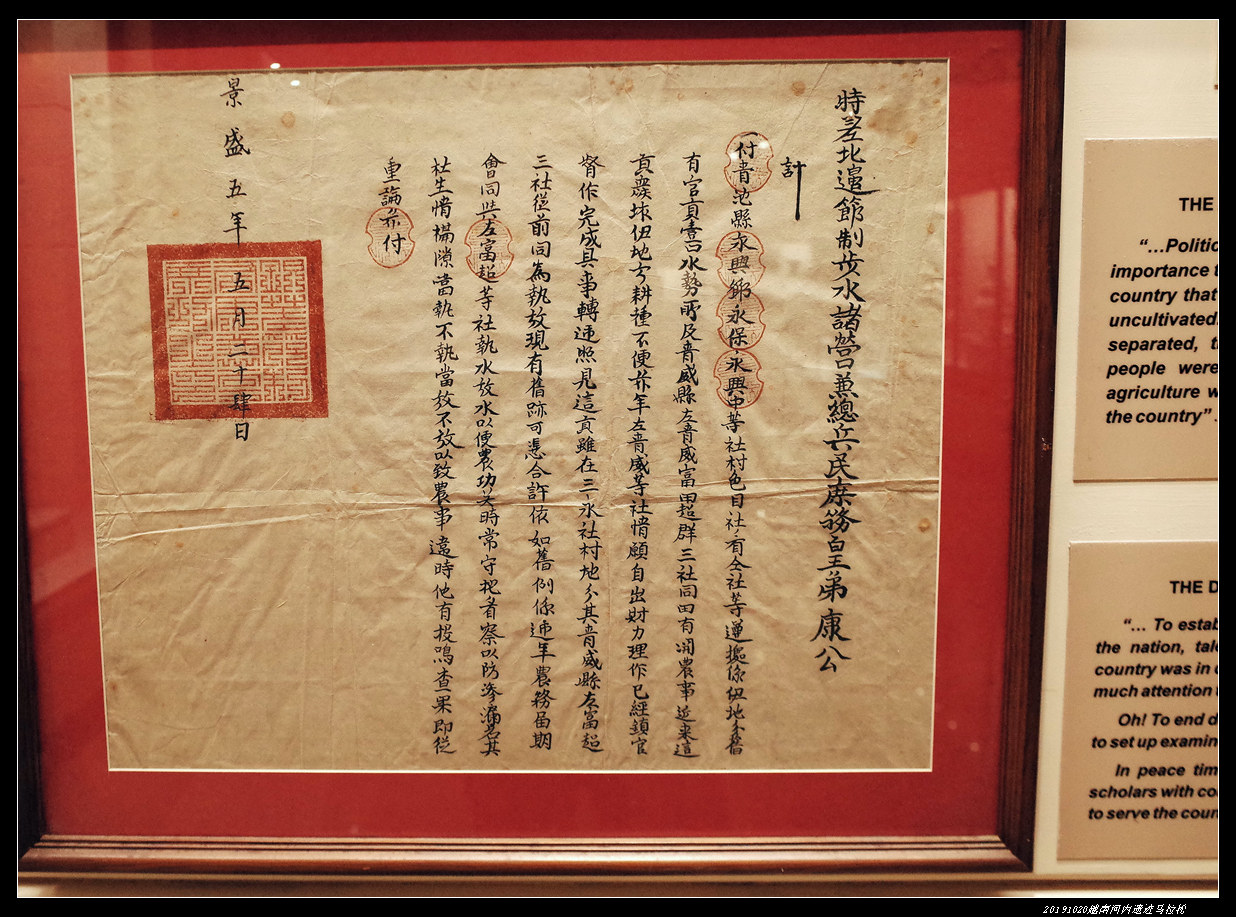 特差北邊節制步水諸營兼總兵民庶務皇弟康公
計
付青池縣永興鄉永保永興中等社村色目社有仝社等遞據係伊地分舊
有官貢壹口水勢所及青威縣左青威富田超群三社同田有開農事近來這
貢衆坡伊地分耕種不便茲年左青威等社情願自出財力理作已經鎮官
督作完成具事轉逓照見這貢雖在三永社村地分其青威縣左富超
三社從前同為執放現有舊跡可憑合許依如舊例係逓年農務届期
會同與左富超等社執水放水以便農功关時常守把看察以防滲漏若其
社生情構隙當執不執當放不放以致農事違時他有投鳴查果即從
重論茲付
景盛五年五月二十肆日
THE
“...Politic
importance t
country that
uncultivated.
separated, t
people were
agriculture w
the country”.
THE D
“... To estab
the nation, tale
country was in
much attention
Oh! To end d
to set up examin
In peace tim
scholars with co
to serve the coun
20191020越南河内遗迹马拉松